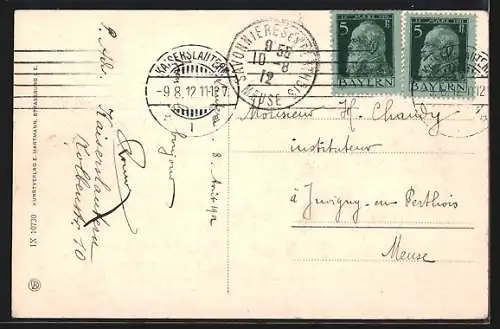 KUNSTVERLAG E. HARTMANN, STRASSBURG i. E.
IX 10730
Kaiserslautern
Kolbenstr. 10
8 Août 1912
bonjour
KAISERSLAUTERN
-9.8.12.11-12.V.
1
SAVONNIERES-EN-PERTHOIS
8 55
10 - 8
12
MEUSE
5 5
BAYERN BAYERN
Monsieur H. Chaudy
instituteur
à Juvigny-en Perthois
Meuse